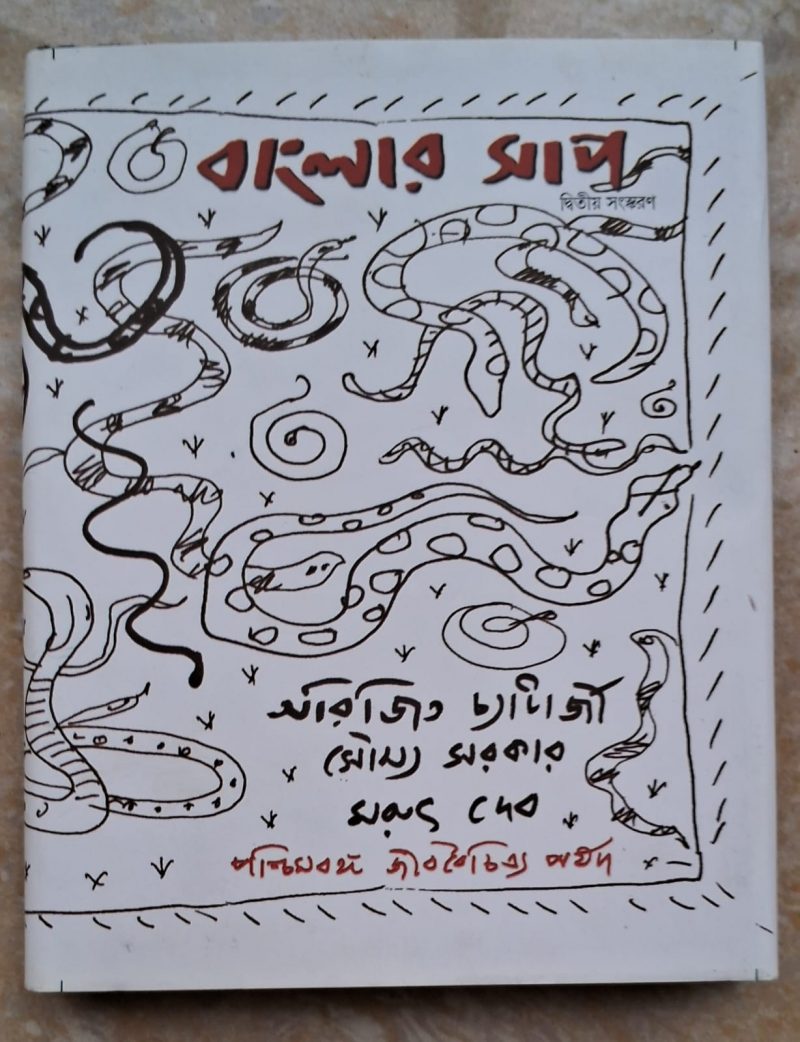 বাংলার সাপ
দ্বিতীয় সংস্করণ
অরিজিৎ চ্যাটার্জী
সৌম্য সরকার
সরুৎ দেব
পশ্চিমবঙ্গ জীববৈচিত্র্য পর্ষদ